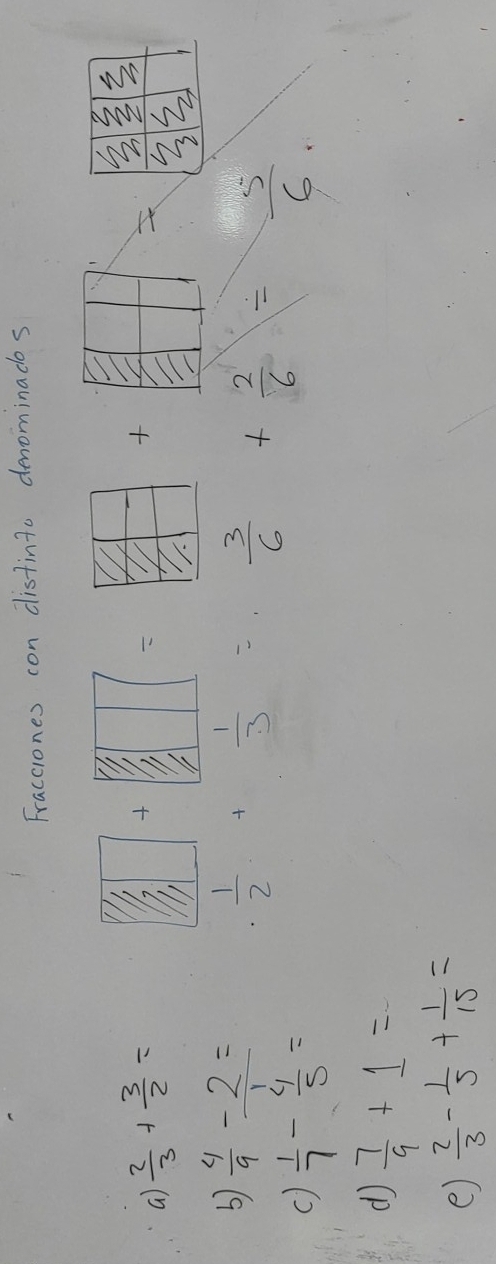 Fracciones con distinto denominados
+ = + =
1/2 + 1/3 = 3/6 + 2/6 = 5/6
a) 2/3 + 3/2 =
b) 4/9 - 2/1 =
c) 1/7 - 4/5 =
d) 7/9 + 1 =
e) 2/3 - 1/5 + 1/15 =